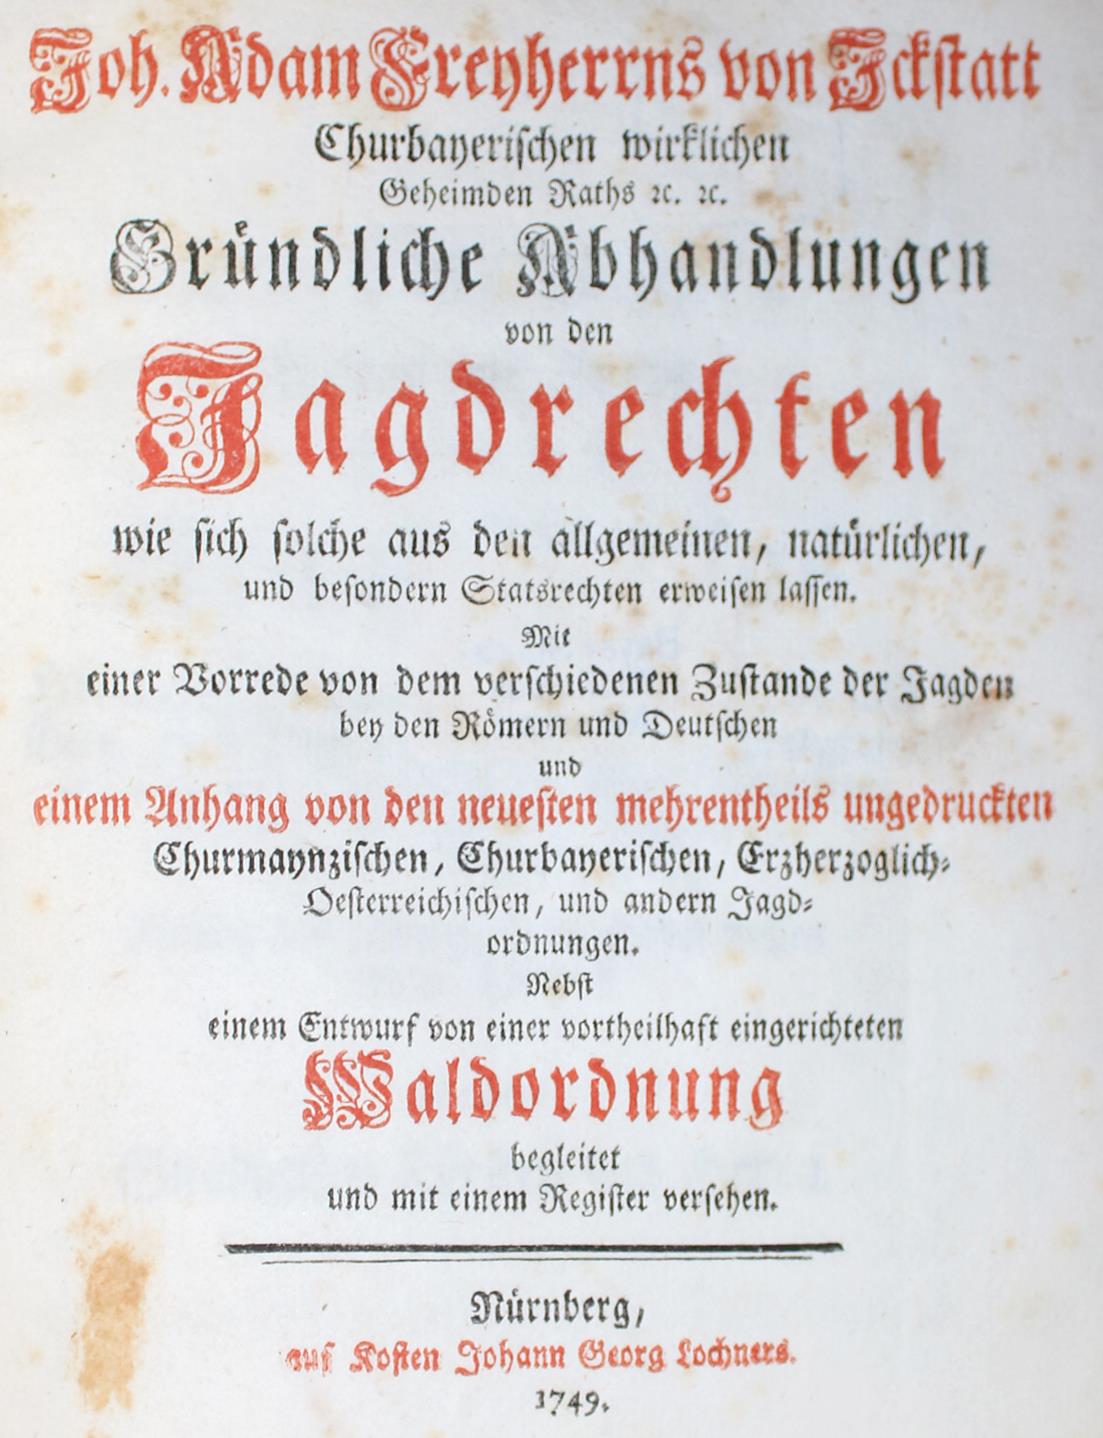 Joh. Adam Freyherrns von Ickstatt
Churbayerischen wirklichen
Geheimden Raths ꝛc. ꝛc.
Gründliche Abhandlungen
von den
Jagdrechten
wie sich solche aus den allgemeinen, natürlichen,
und besondern Statsrechten erweisen lassen.
Mit
einer Vorrede von dem verschiedenen Zustande der Jagden
bey den Römern und Deutschen
und
einem Anhang von den neuesten mehrentheils ungedruckten
Churmaynzischen, Churbayerischen, Erzherzoglich-
Oesterreichischen, und andern Jagd-
ordnungen.
Nebst
einem Entwurf von einer vortheilhaft eingerichteten
Waldordnung
begleitet
und mit einem Register versehen.
Nürnberg,
auf Kosten Johann Georg Lochners.
1749.